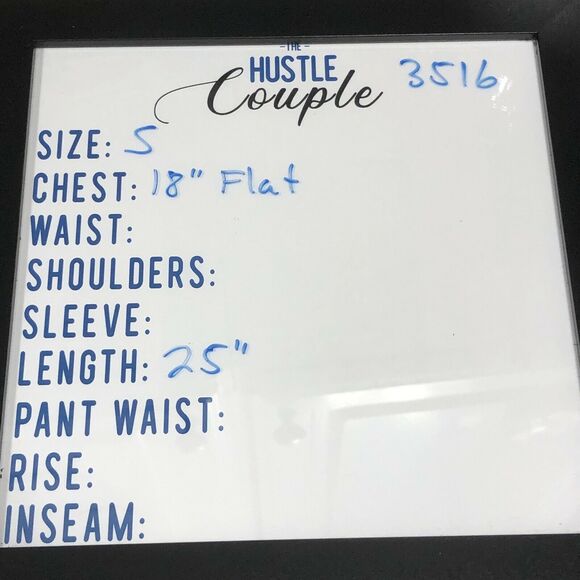 -THE-
HUSTLE
Couple
3516
SIZE: S
CHEST: 18" Flat
WAIST:
SHOULDERS:
SLEEVE:
LENGTH: 25"
PANT WAIST:
RISE:
INSEAM: